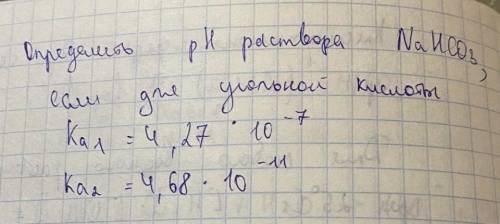 Определить pH раствора NaHCO₃,
если для угольной кислоты
Ka₁ = 4,27 · 10⁻⁷
Ka₂ = 4,68 · 10⁻¹¹